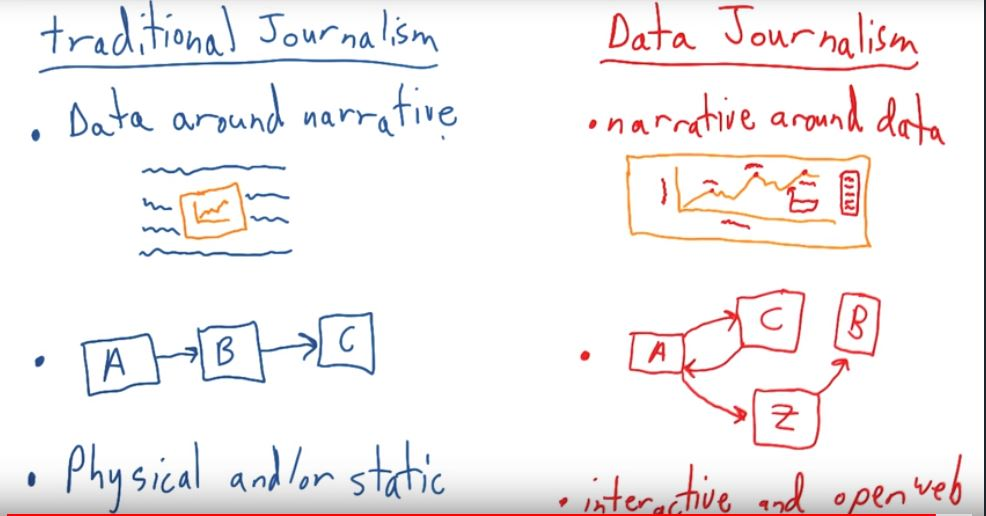 traditional Journalism
• Data around narrative
A B C
• Physical and/or static
Data Journalism
• narrative around data
A C B
Z
• interactive and open web